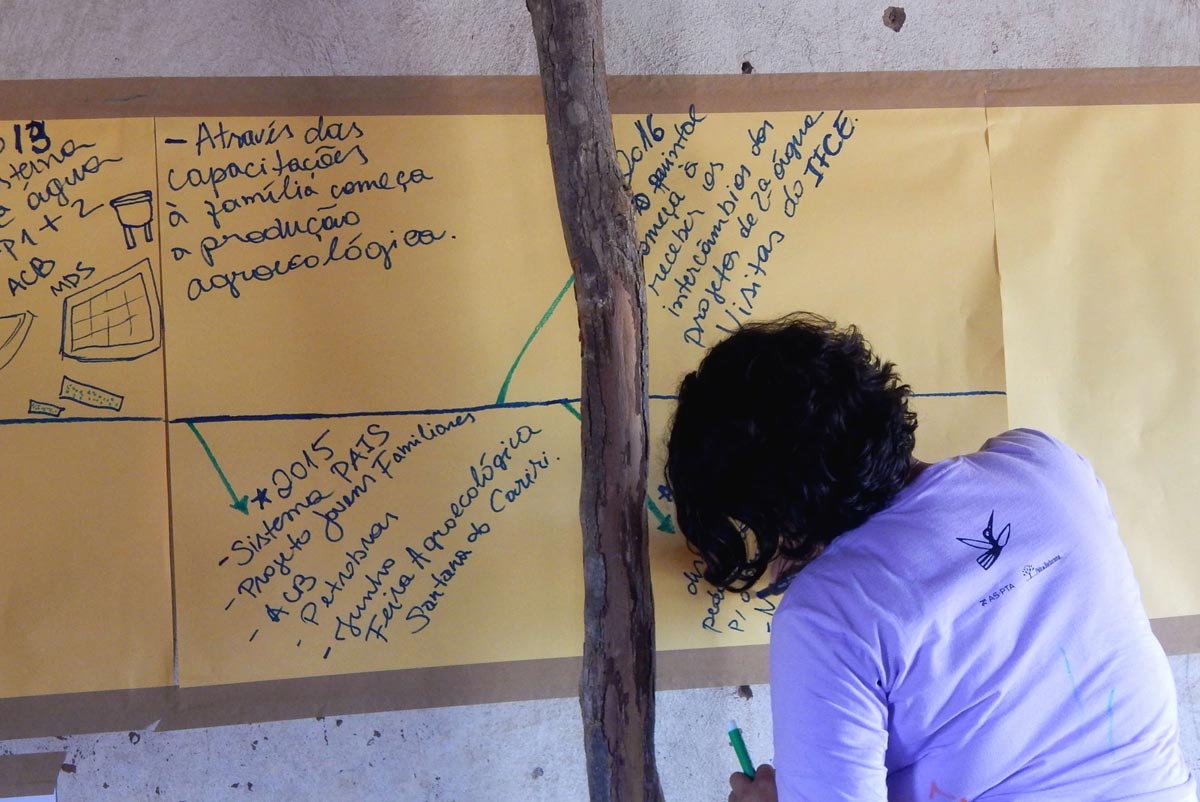 13
água
P1+2
ACB
MDS
- Através das
capacitações
à família começa
a produção
agroecológica.
2016
O quintal
começa à
receber os
intercâmbios dos
projetos de 2ª água
Visitas do IFCE.
* 2015
- Sistema PAIS
- Projeto Jovens Familiares
- ACB
- Petrobras
- Junho
Feira Agroecológica
Santana do Cariri.
*
P/
AS-PTA